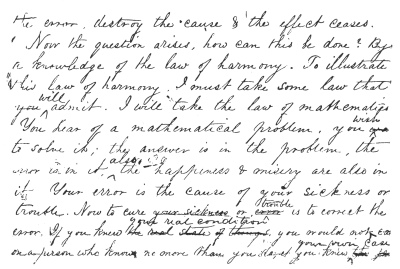 the error, destroy the cause & the effect ceases.
Now the question arises, how can this be done? By
a knowledge of the law of harmony. To illustrate
this law of harmony I must take some law that
you will admit. I will take the law of mathematics
You hear of a mathematical problem, you wish
to solve it; the answer is in the problem, the
error is in it, also the happiness & misery are also in
it. Your error is the cause of your sickness or
trouble. Now to cure your sickness or trouble is to correct the
error. If you knew your real condition the real state of things, you would not
on a person who knows no more than you do, yet you knew your own case